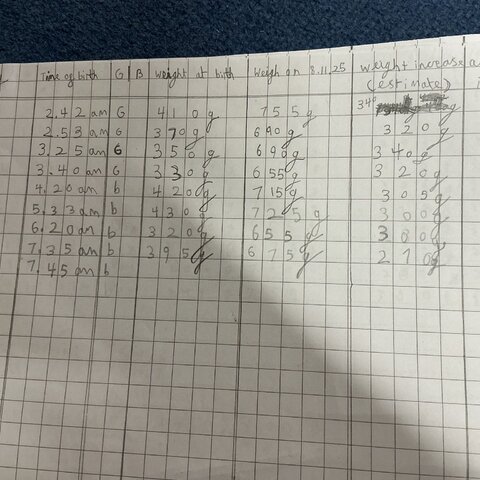 Time of birth G B Weight at birth Weigh on 8.11.25 weight increase a
(estimate) i
340
2.42am G 755g
2.53am G 370g 690g 320g
3.25am G 350g 690g 340g
3.40am G 330g 655g 320g
4.20am b 420g 715g 305g
5.33am b 430g 725g 300g
6.20am b 320g 655g 300g
7.35am b 395g 675g
7.45am b